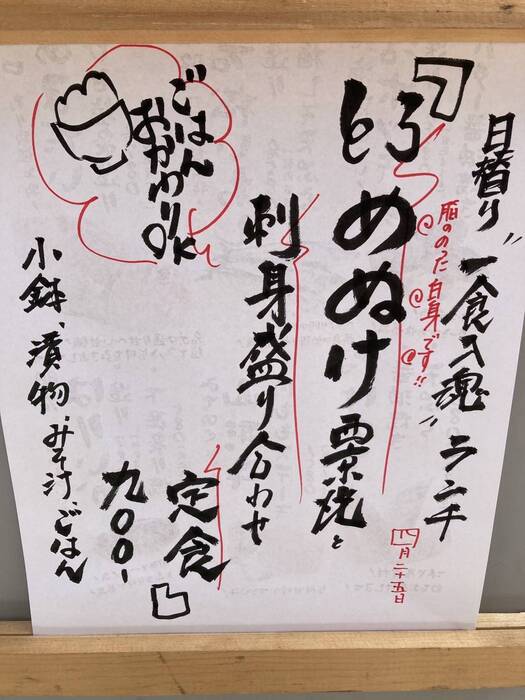 日替り"一食入魂"ランチ
脂ののった白身です!!
四月二十五日
とろめぬけ西京焼と
刺身盛り合わせ
定食
九〇〇-
ごはん
おかわりOK
小鉢、漬物、みそ汁、ごはん